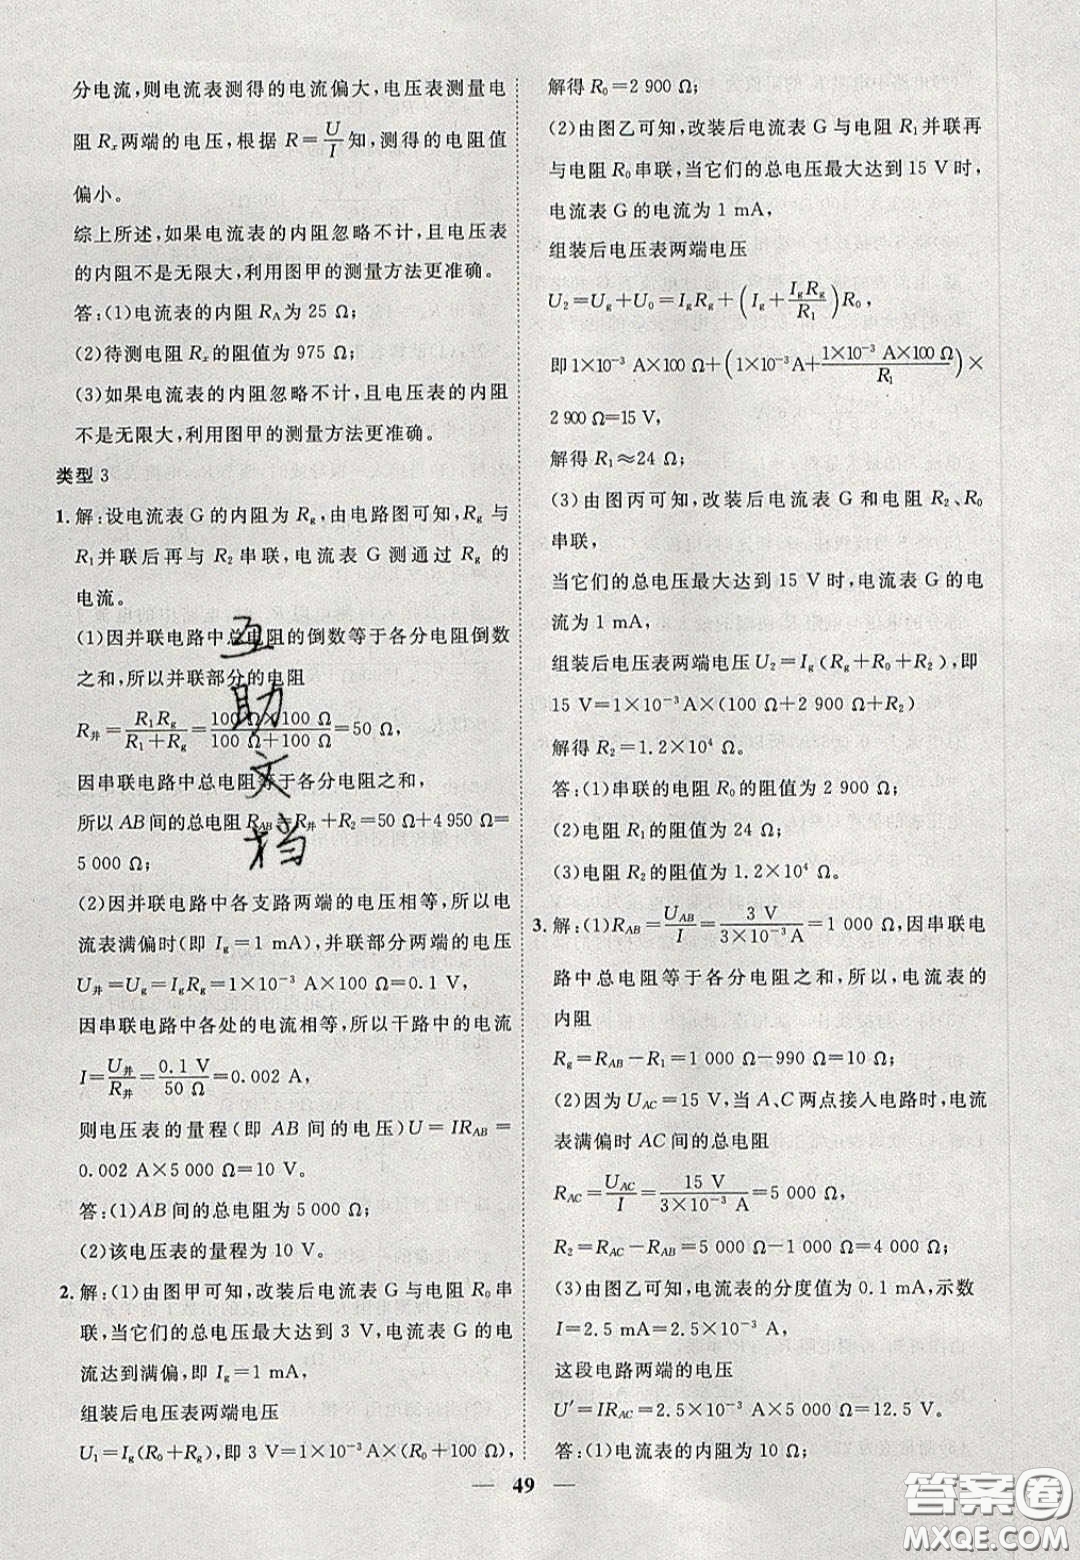 分电流,则电流表测得的电流偏大,电压表测量电
阻 Rₓ两端的电压,根据 R=U/I知,测得的电阻值
偏小。
综上所述,如果电流表的内阻忽略不计,且电压表
的内阻不是无限大,利用图甲的测量方法更准确。
答:(1)电流表的内阻 R_A为 25 Ω;
(2)待测电阻 Rₓ的阻值为 975 Ω;
(3)如果电流表的内阻忽略不计,且电压表的内阻
不是无限大,利用图甲的测量方法更准确。
类型 3
1. 解:设电流表 G 的内阻为 R_g,由电路图可知,R_g 与
R₁并联后再与 R₂ 串联,电流表 G 测通过 R_g 的
电流。
(1)因并联电路中总电阻的倒数等于各分电阻倒数
之和,所以并联部分的电阻
R_并=R₁R_g/(R₁+R_g)=(100 Ω×100 Ω)/(100 Ω+100 Ω)=50 Ω,
因串联电路中总电阻等于各分电阻之和,
所以 AB 间的总电阻 R_AB=R_并+R₂=50 Ω+4 950 Ω=
5 000 Ω;
(2)因并联电路中各支路两端的电压相等,所以电
流表满偏时(即 I_g=1 mA),并联部分两端的电压
U_并=U_g=I_gR_g=1×10⁻³ A×100 Ω=0.1 V,
因串联电路中各处的电流相等,所以干路中的电流
I=U_并/R_并=0.1 V/50 Ω=0.002 A,
则电压表的量程(即 AB 间的电压)U=IR_AB=
0.002 A×5 000 Ω=10 V。
答:(1)AB 间的总电阻为 5 000 Ω;
(2)该电压表的量程为 10 V。
2. 解:(1)由图甲可知,改装后电流表 G 与电阻 R₀串
联,当它们的总电压最大达到 3 V 时,电流表 G 的电
流达到满偏,即 I_g=1 mA,
组装后电压表两端电压
U₁=I_g(R₀+R_g),即 3 V=1×10⁻³ A×(R₀+100 Ω),
解得 R₀=2 900 Ω;
(2)由图乙可知,改装后电流表 G 与电阻 R₁并联再
与电阻 R₀串联,当它们的总电压最大达到 15 V 时,
电流表 G 的电流为 1 mA,
组装后电压表两端电压
U₂=U_g+U₀=I_gR_g+(I_g+I_gR_g/R₁)R₀,
即 1×10⁻³ A×100 Ω+(1×10⁻³A+(1×10⁻³ A×100 Ω)/R₁)×
2 900 Ω=15 V,
解得 R₁≈24 Ω;
(3)由图丙可知,改装后电流表 G 和电阻 R₂、R₀
串联,
当它们的总电压最大达到 15 V 时,电流表 G 的电
流为 1 mA,
组装后电压表两端电压 U₂=I_g(R_g+R₀+R₂),即
15 V=1×10⁻³A×(100 Ω+2 900 Ω+R₂)
解得 R₂=1.2×10⁴ Ω。
答:(1)串联的电阻 R₀的阻值为 2 900 Ω;
(2)电阻 R₁的阻值为 24 Ω;
(3)电阻 R₂的阻值为 1.2×10⁴ Ω。
3. 解:(1)R_AB=U_AB/I=3 V/(3×10⁻³A)=1 000 Ω,因串联电
路中总电阻等于各分电阻之和,所以,电流表的
内阻
R_g=R_AB−R₁=1 000 Ω−990 Ω=10 Ω;
(2)因为 U_AC=15 V,当 A、C 两点接入电路时,电流
表满偏时 AC 间的总电阻
R_AC=U_AC/I=15 V/(3×10⁻³ A)=5 000 Ω,
R₂=R_AC−R_AB=5 000 Ω−1 000 Ω=4 000 Ω;
(3)由图乙可知,电流表的分度值为 0.1 mA,示数
I=2.5 mA=2.5×10⁻³A,
这段电路两端的电压
U′=IR_AC=2.5×10⁻³A×5 000 Ω=12.5 V。
答:(1)电流表的内阻为 10 Ω;
— 49 —
互助文档
答案圈
MXQE.COM